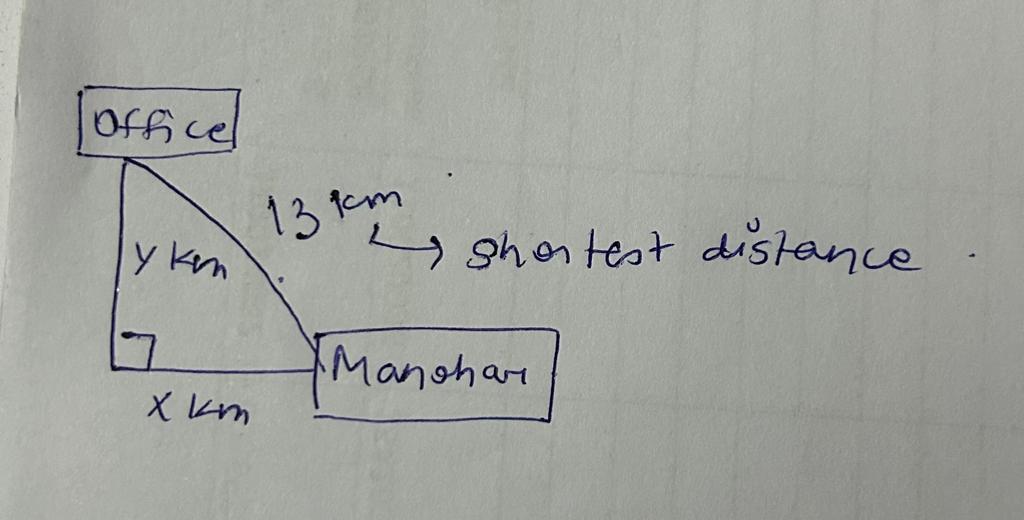 Office
13 km
y km
shortest distance
Manohar
x km